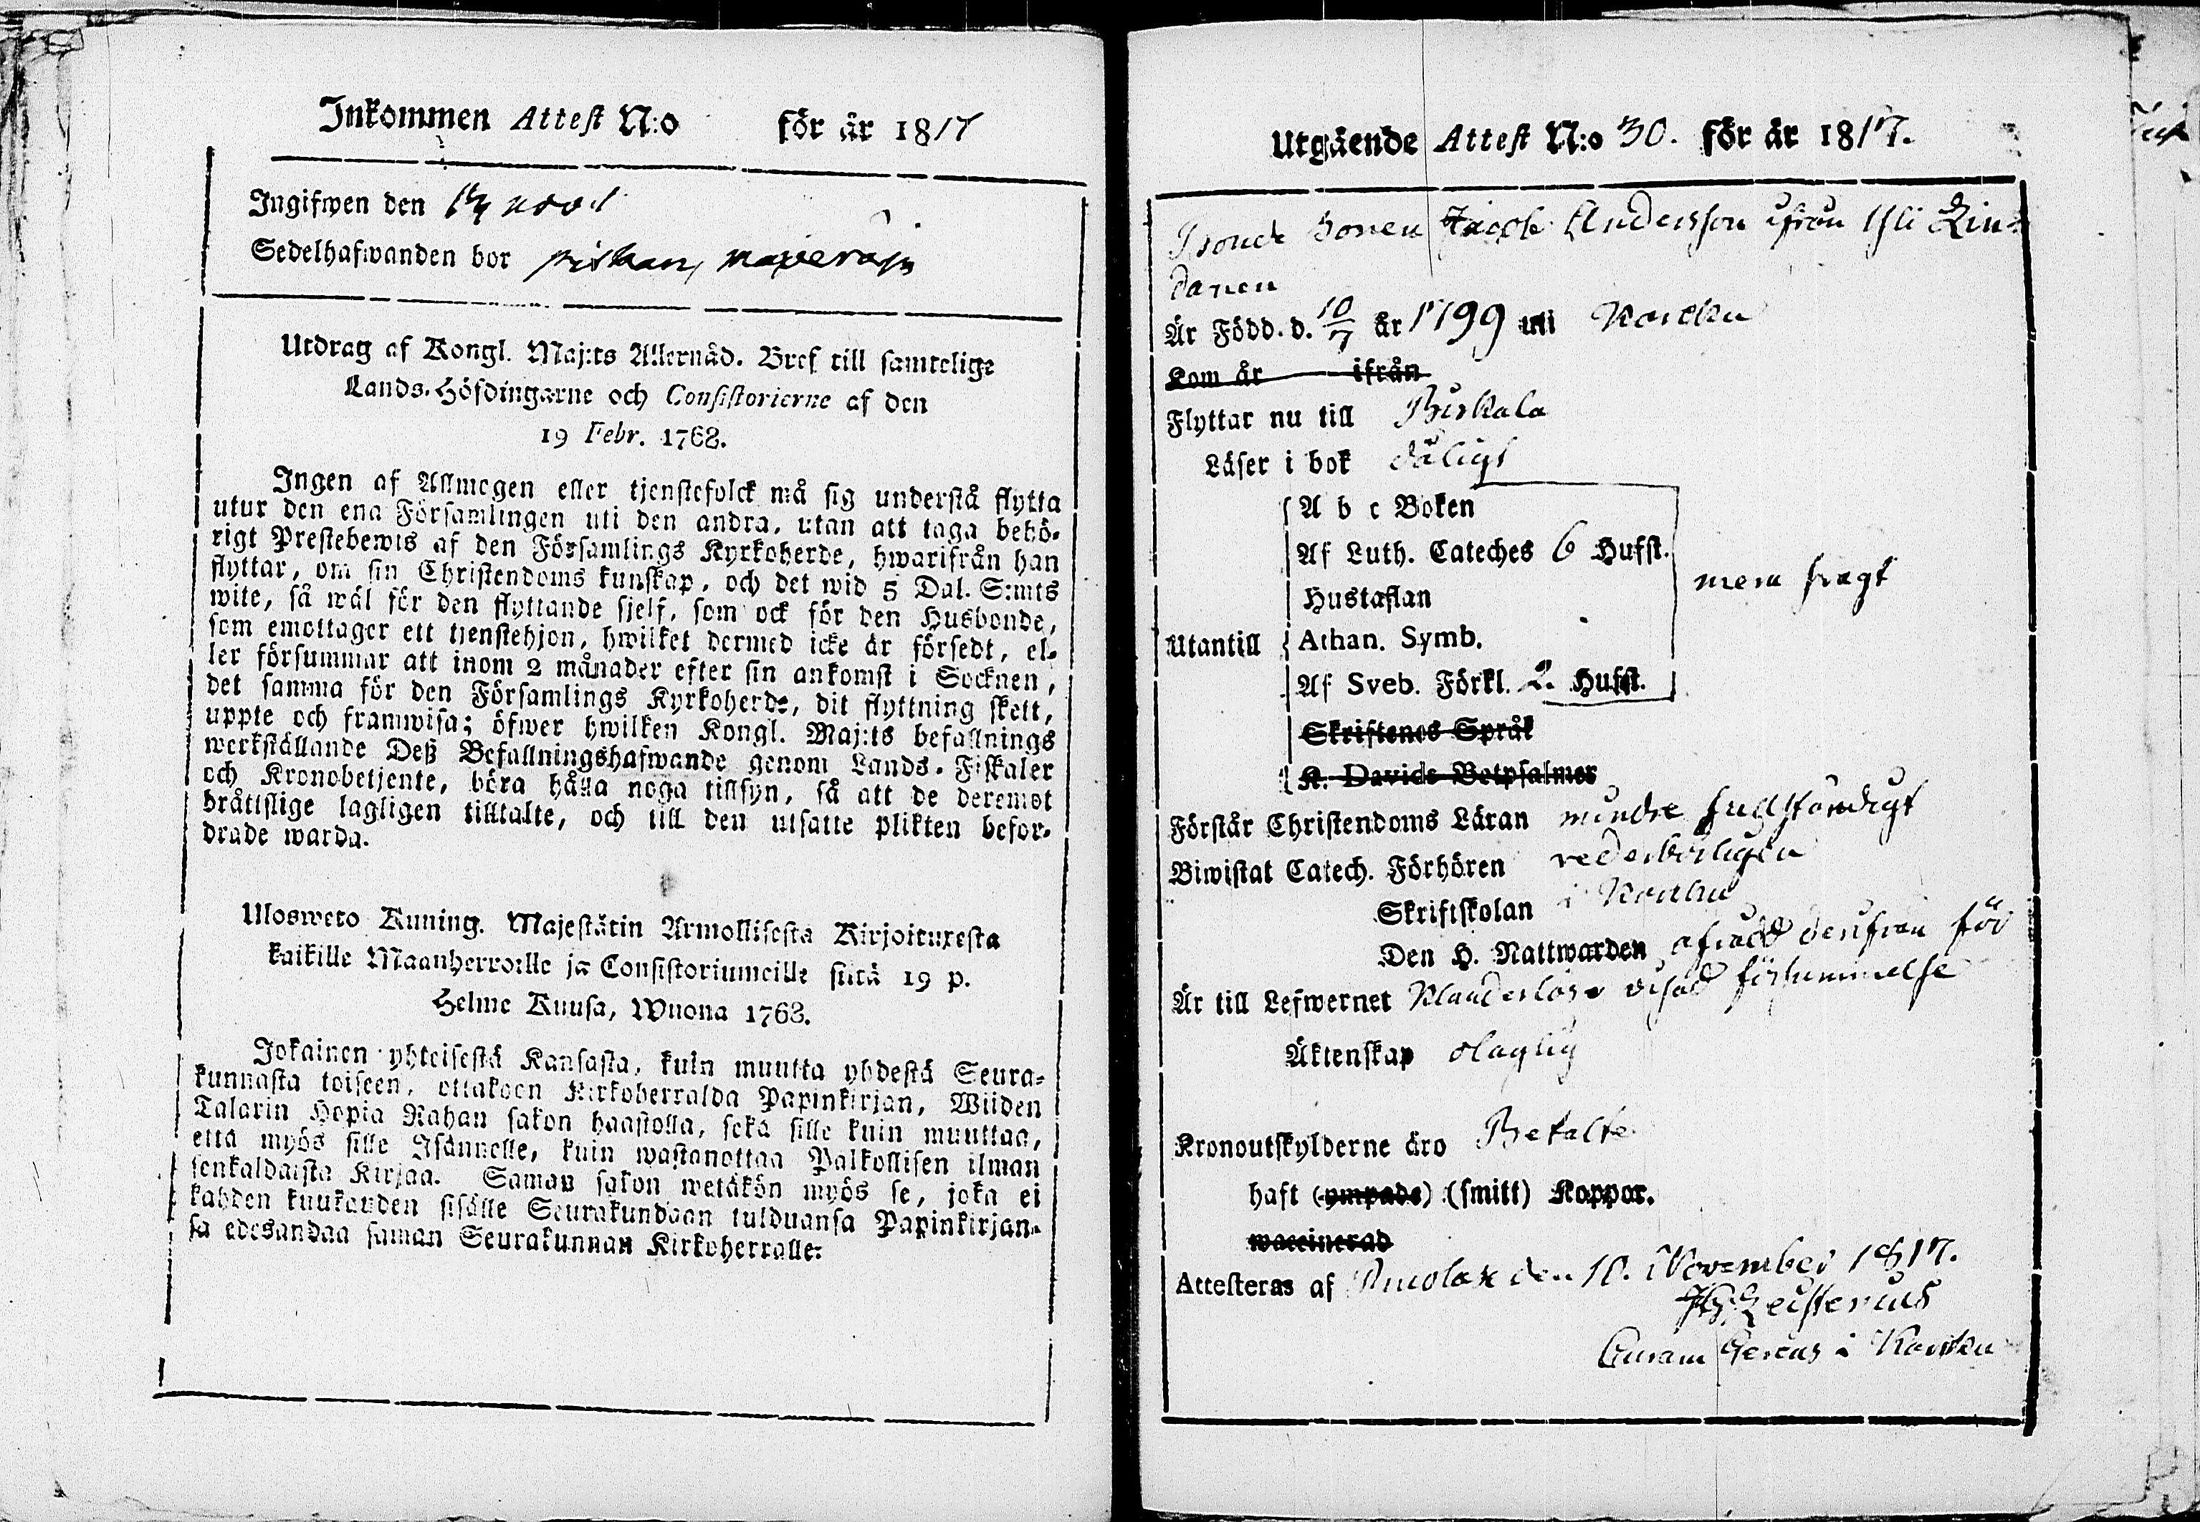 Inkommen Attest N:o för år 1817
Ingifwen den 14 nov
Sedelhafwanden bor
Utdrag af Kongl. Maj:ts Allernåd. Bref till samtelige
Lands-Höfdingarne och Consistorierne af den
19 Febr. 1768.
Ingen af Allmogen eller tjenstefolck må sig understå flytta
utur den ena Församlingen uti den andra, utan att taga behö-
rigt Prestebewis af den Församlings Kyrkoherde, hwarifrån han
flyttar, om sin Christendoms kunskap, och det wid 5 Dal. S:mts
wite, så wäl för den flyttande sjelf, som ock för den Husbonde,
som emottager ett tjenstehjon, hwilket dermed icke är försedt, el-
ler försummar att inom 2 månader efter sin ankomst i Socknen,
det samma för den Församlings Kyrkoherde, dit flyttning skett,
uppte och framwisa; öfwer hwilken Kongl. Maj:ts befallnings
werkställande Deß Befallningshafwande genom Lands-Fiskaler
och Kronobetjente, böra hålla noga tillsyn, så att de deremot
bråttslige lagligen tilltalte, och till den utsatte plikten befor-
drade warda.
Ulosweto Kuning. Majestätin Armollisesta Kirjoituxesta
kaikille Maanherroille ja Consistoriumeille siitä 19 p.
Helme Kuusa, Wuona 1768.
Jokainen yhteisestä Kansasta, kuin muutta yhdestä Seura-
kunnasta toiseen, ottakoon Kirkoherralda Papinkirjan, Wiiden
Talarin Hopia Rahan sakon haastolla, sekä sille kuin muuttaa,
että myös sille Isännelle, kuin wastanottaa Palkollisen ilman
senkaldaista Kirjaa. Saman sakon wetäkön myös se, joka ei
kahden kuukauden sisälle Seurakundaan tulduansa Papinkirjan-
sa edesandaa saman Seurakunnan Kirkoherralle.
Utgående Attest N:o 30. för år 1817.
Bonde Sonen Jacob Andersson ifrån Lin-
danen
Är Född. d. 10/7 år 1799 uti Karcku
Kom år ifrån
Flyttar nu till Birkala
Läser i bok dåligt
A b c Boken
Af Luth. Cateches 6 Hufst.
Hustaflan
mera svagt
Utantill Athan. Symb.
Af Sveb. Förkl. 2. Hufst.
Skriftenes Språk
K. Davids Betpsalmer
Förstår Christendoms Läran mindre fullständigt
Biwistat Catech. Förhören vederbörligen
Skriftskolan i Karcku
Den H. Nattwarden afvid derifrån för
Är till Lefwernet Klanderlös visad försummelse
Äktenskap olaglig
Kronoutskylderne äro Betalte
haft (ympade) (smitt) Koppor.
waccinerad
Attesteras af den 10. November 1817.
Curam Gerens i Karcku